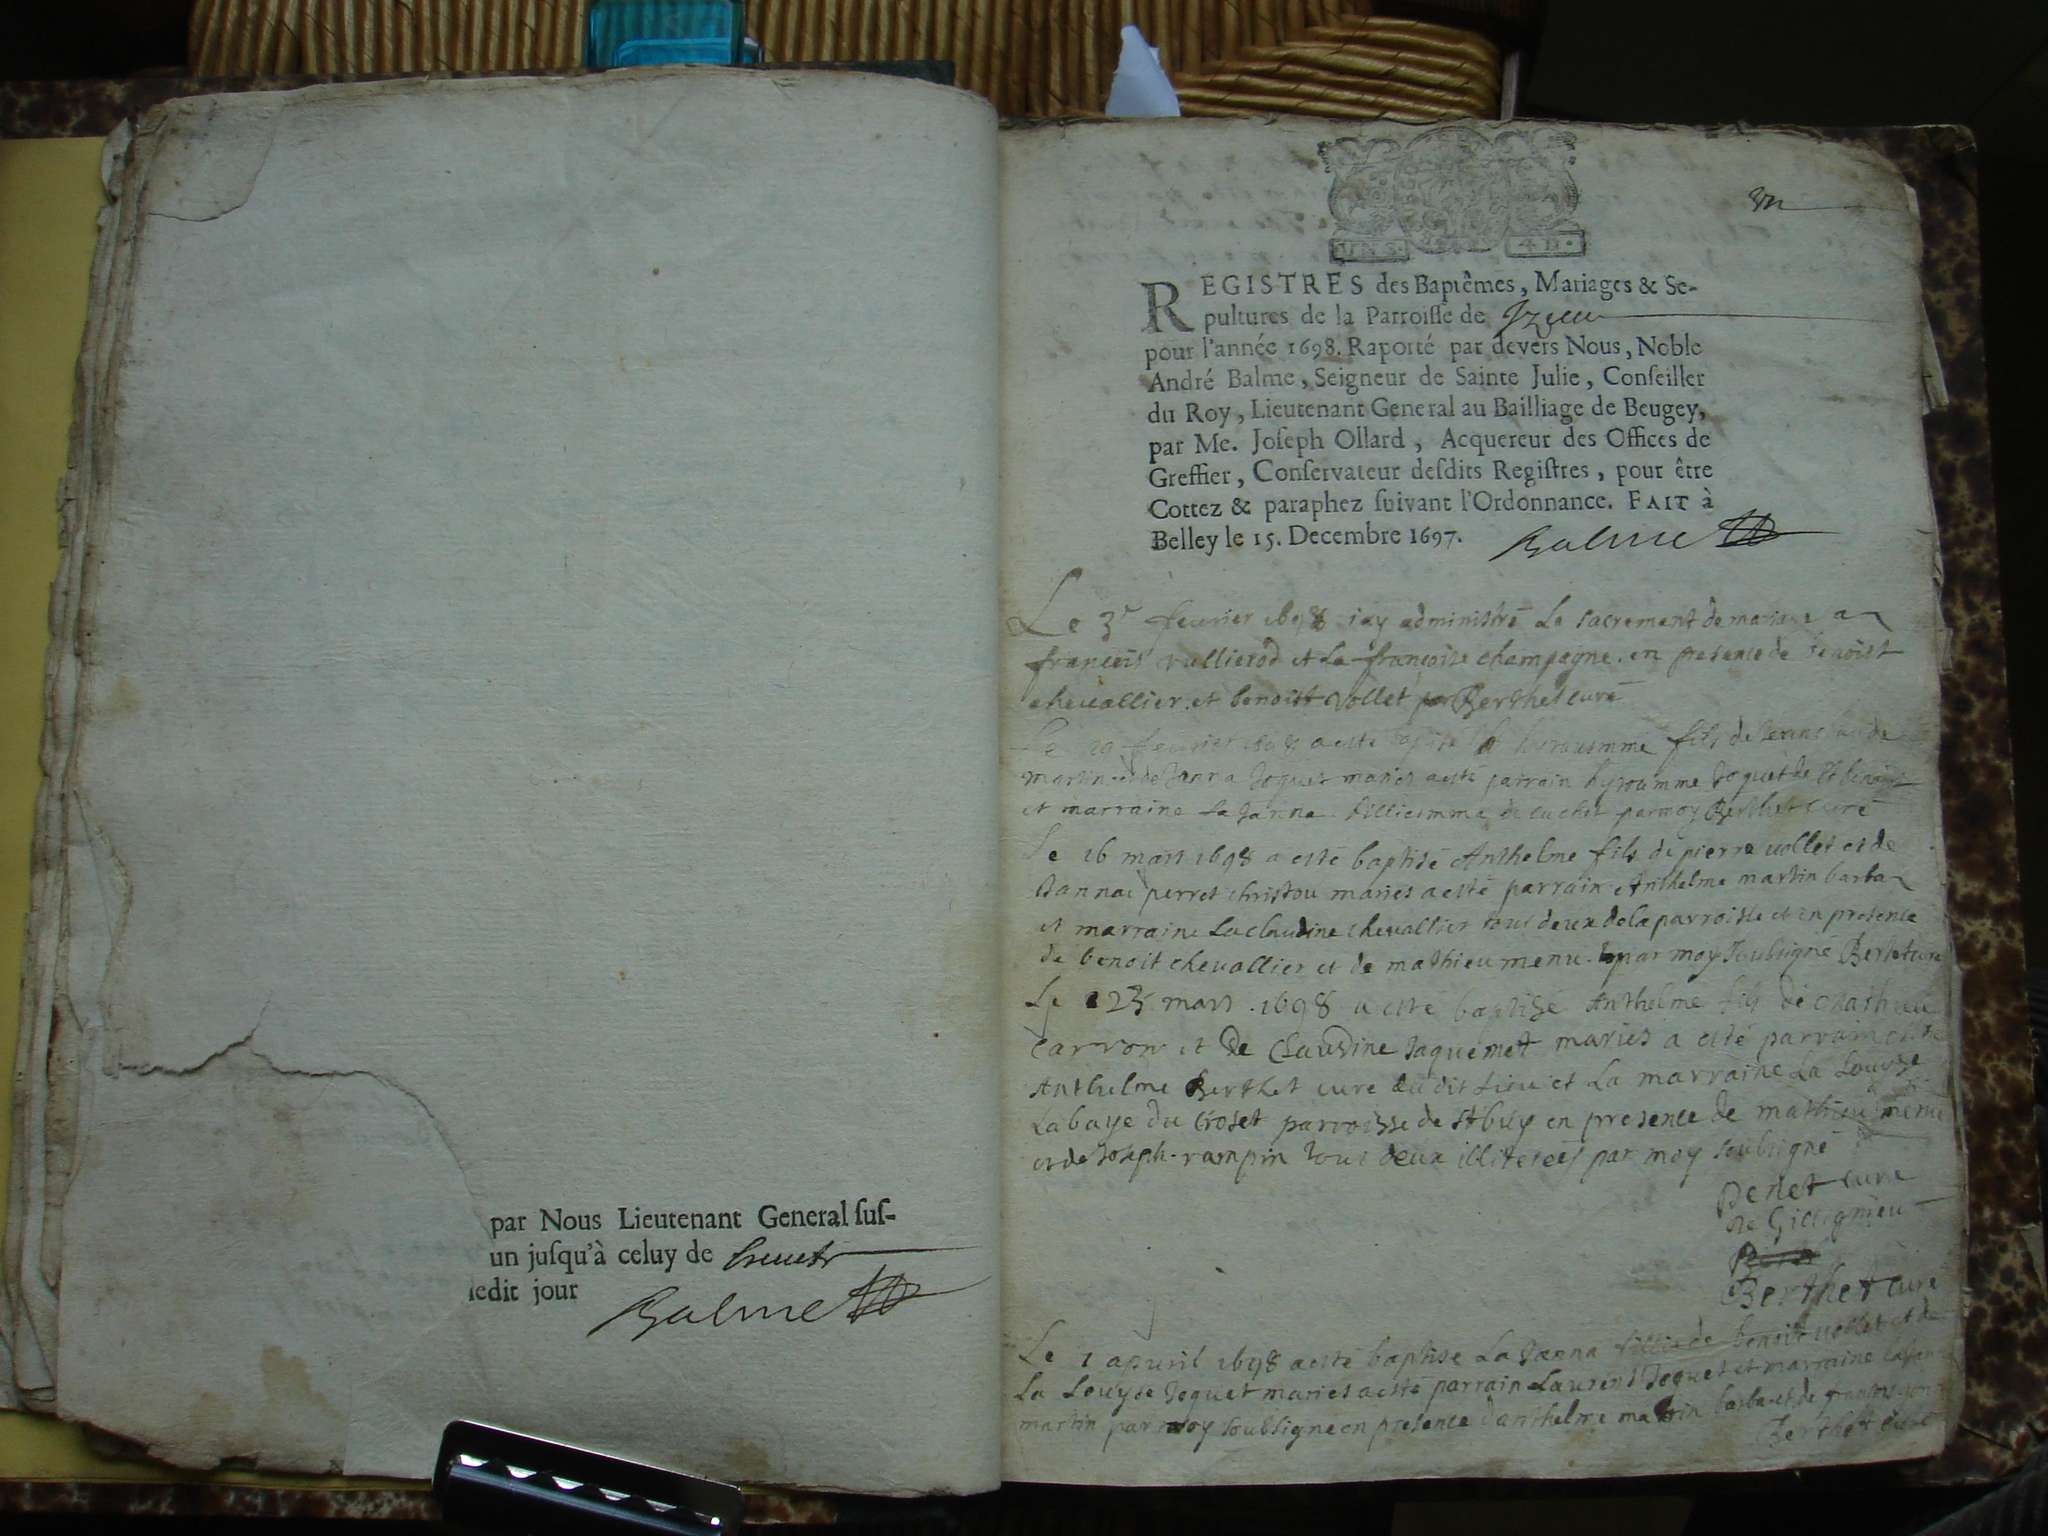 par Nous Lieutenant General ſuſ-
un juſqu'à celuy de
ledit jour
Balme
UN S. 4 D.
REGISTRES des Baptêmes, Mariages & Se-
pultures de la Parroiſſe de Izieu
pour l'année 1698. Raporté par devers Nous, Noble
André Balme, Seigneur de Sainte Julie, Conſeiller
du Roy, Lieutenant General au Bailliage de Beugey,
par Me. Joſeph Ollard, Acquereur des Offices de
Greffier, Conſervateur deſdits Regiſtres, pour être
Cottez & paraphez ſuivant l'Ordonnance. FAIT à
Belley le 15. Decembre 1697. Balme
Le 3e feurier 1698 iay administré Le sacrement de mariage a
francois vullierod et La francoise champagne. en presence de benoist
chevallier. et benoist vollet Berthet curé
Le feurier 1698 a esté fils de
martin et de Janna Joquet mariés a esté parrain Joquet de St benoist
et marraine La Janna par moy Berthet curé
Le 16 mars 1698 a esté baptisé Anthelme fils de pierre vollet et de
Janna perret christou mariés a esté parrain Anthelme martin barba
et marraine La claudine chevallier tous deux de la parroisse et en presence
de benoit chevallier et de mathieu menu. par moy soubsigné Berthet curé
Le 23 mars. 1698 a esté baptisé Anthelme fils de Mathieu
carron et de Claudine Jaquemet mariés a esté parrain
Anthelme Berthet curé du dit lieu et La marraine La Louyse
Labaye du Croset parroisse de St en presence de mathieu menu
et de Joseph rampin tous deux par moy soubsigné
curé
de
Berthet curé
Le 1 apuril 1698 a esté baptisé La Janna fillie de benoit vollet et de
La Louyse Joquet mariés a esté parrain Laurent Joquet et marraine
martin par moy soubsigné en presence d'anthelme martin barba et de francois
Berthet curé